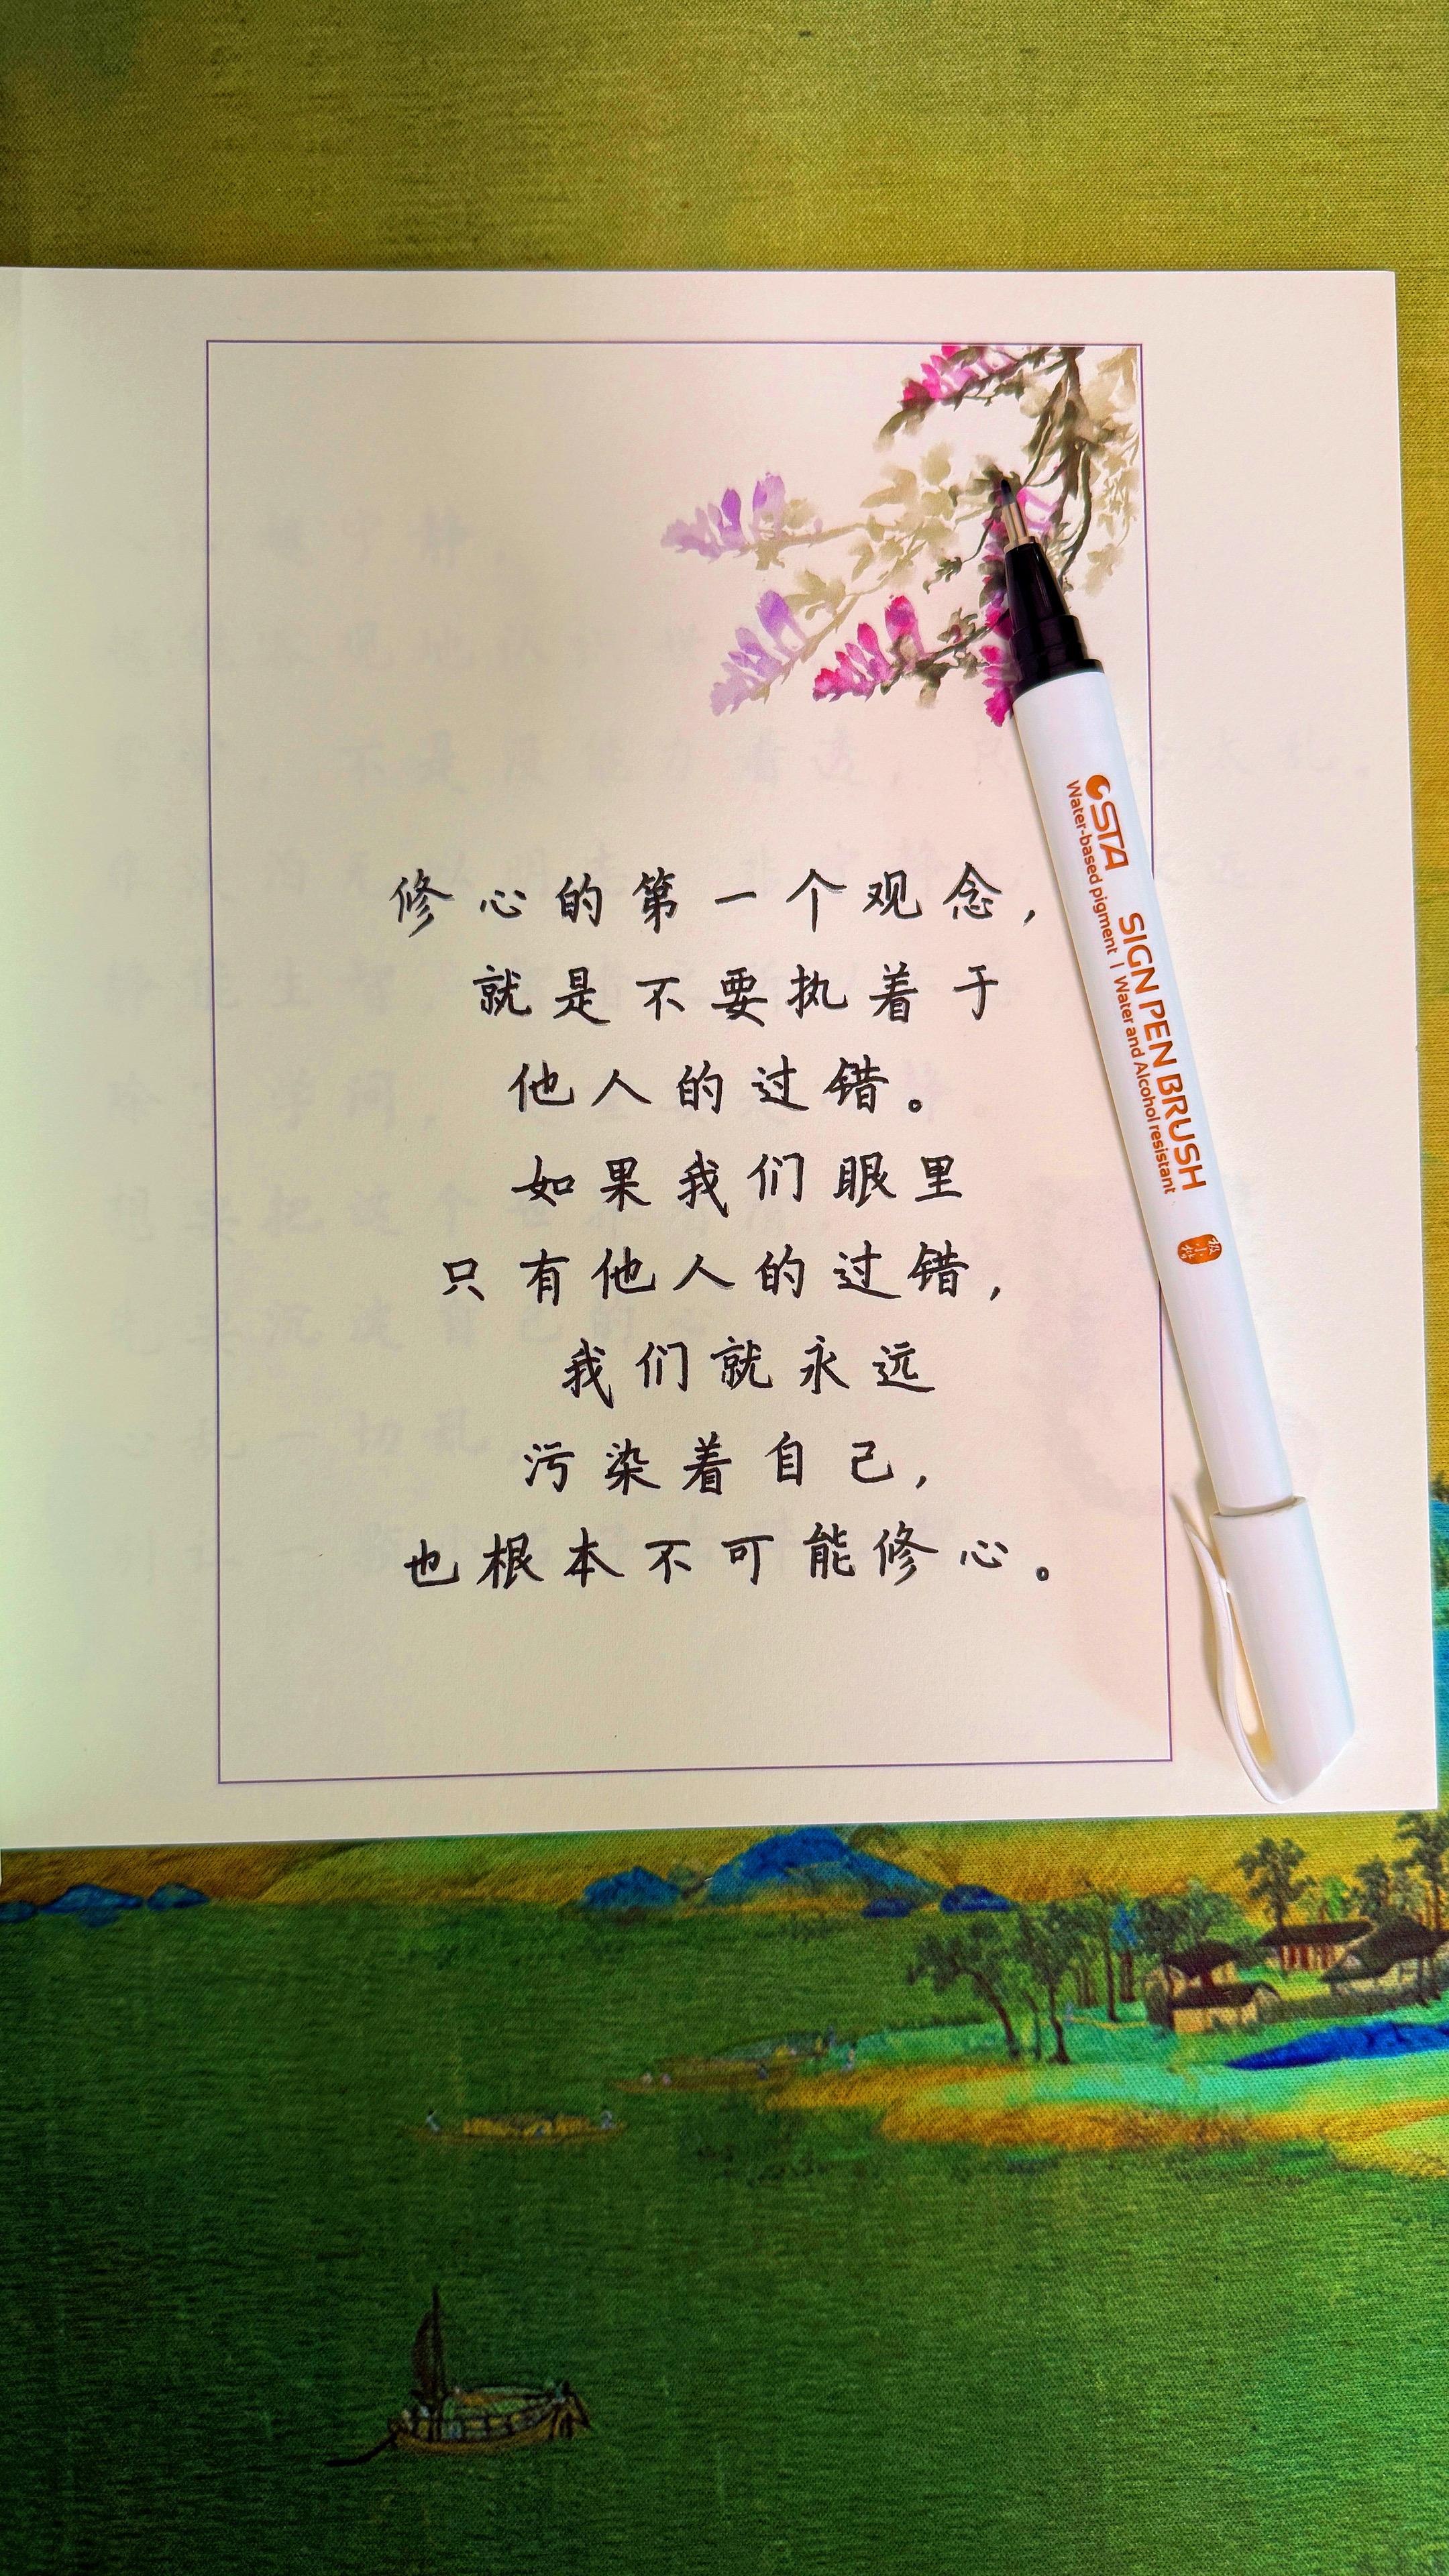 修心的第一个观念，
就是不要执着于
他人的过错。
如果我们眼里
只有他人的过错，
我们就永远
污染着自己，
也根本不可能修心。
STA SIGN PEN BRUSH
Water-based pigment | Water and Alcohol resistant